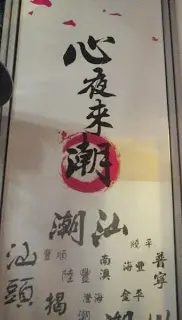 心夜來潮
潮汕
汕頭
豐順
陸豐
揭
南澳
澄海
潮
海豐
饒平
金平
普寧
潮州